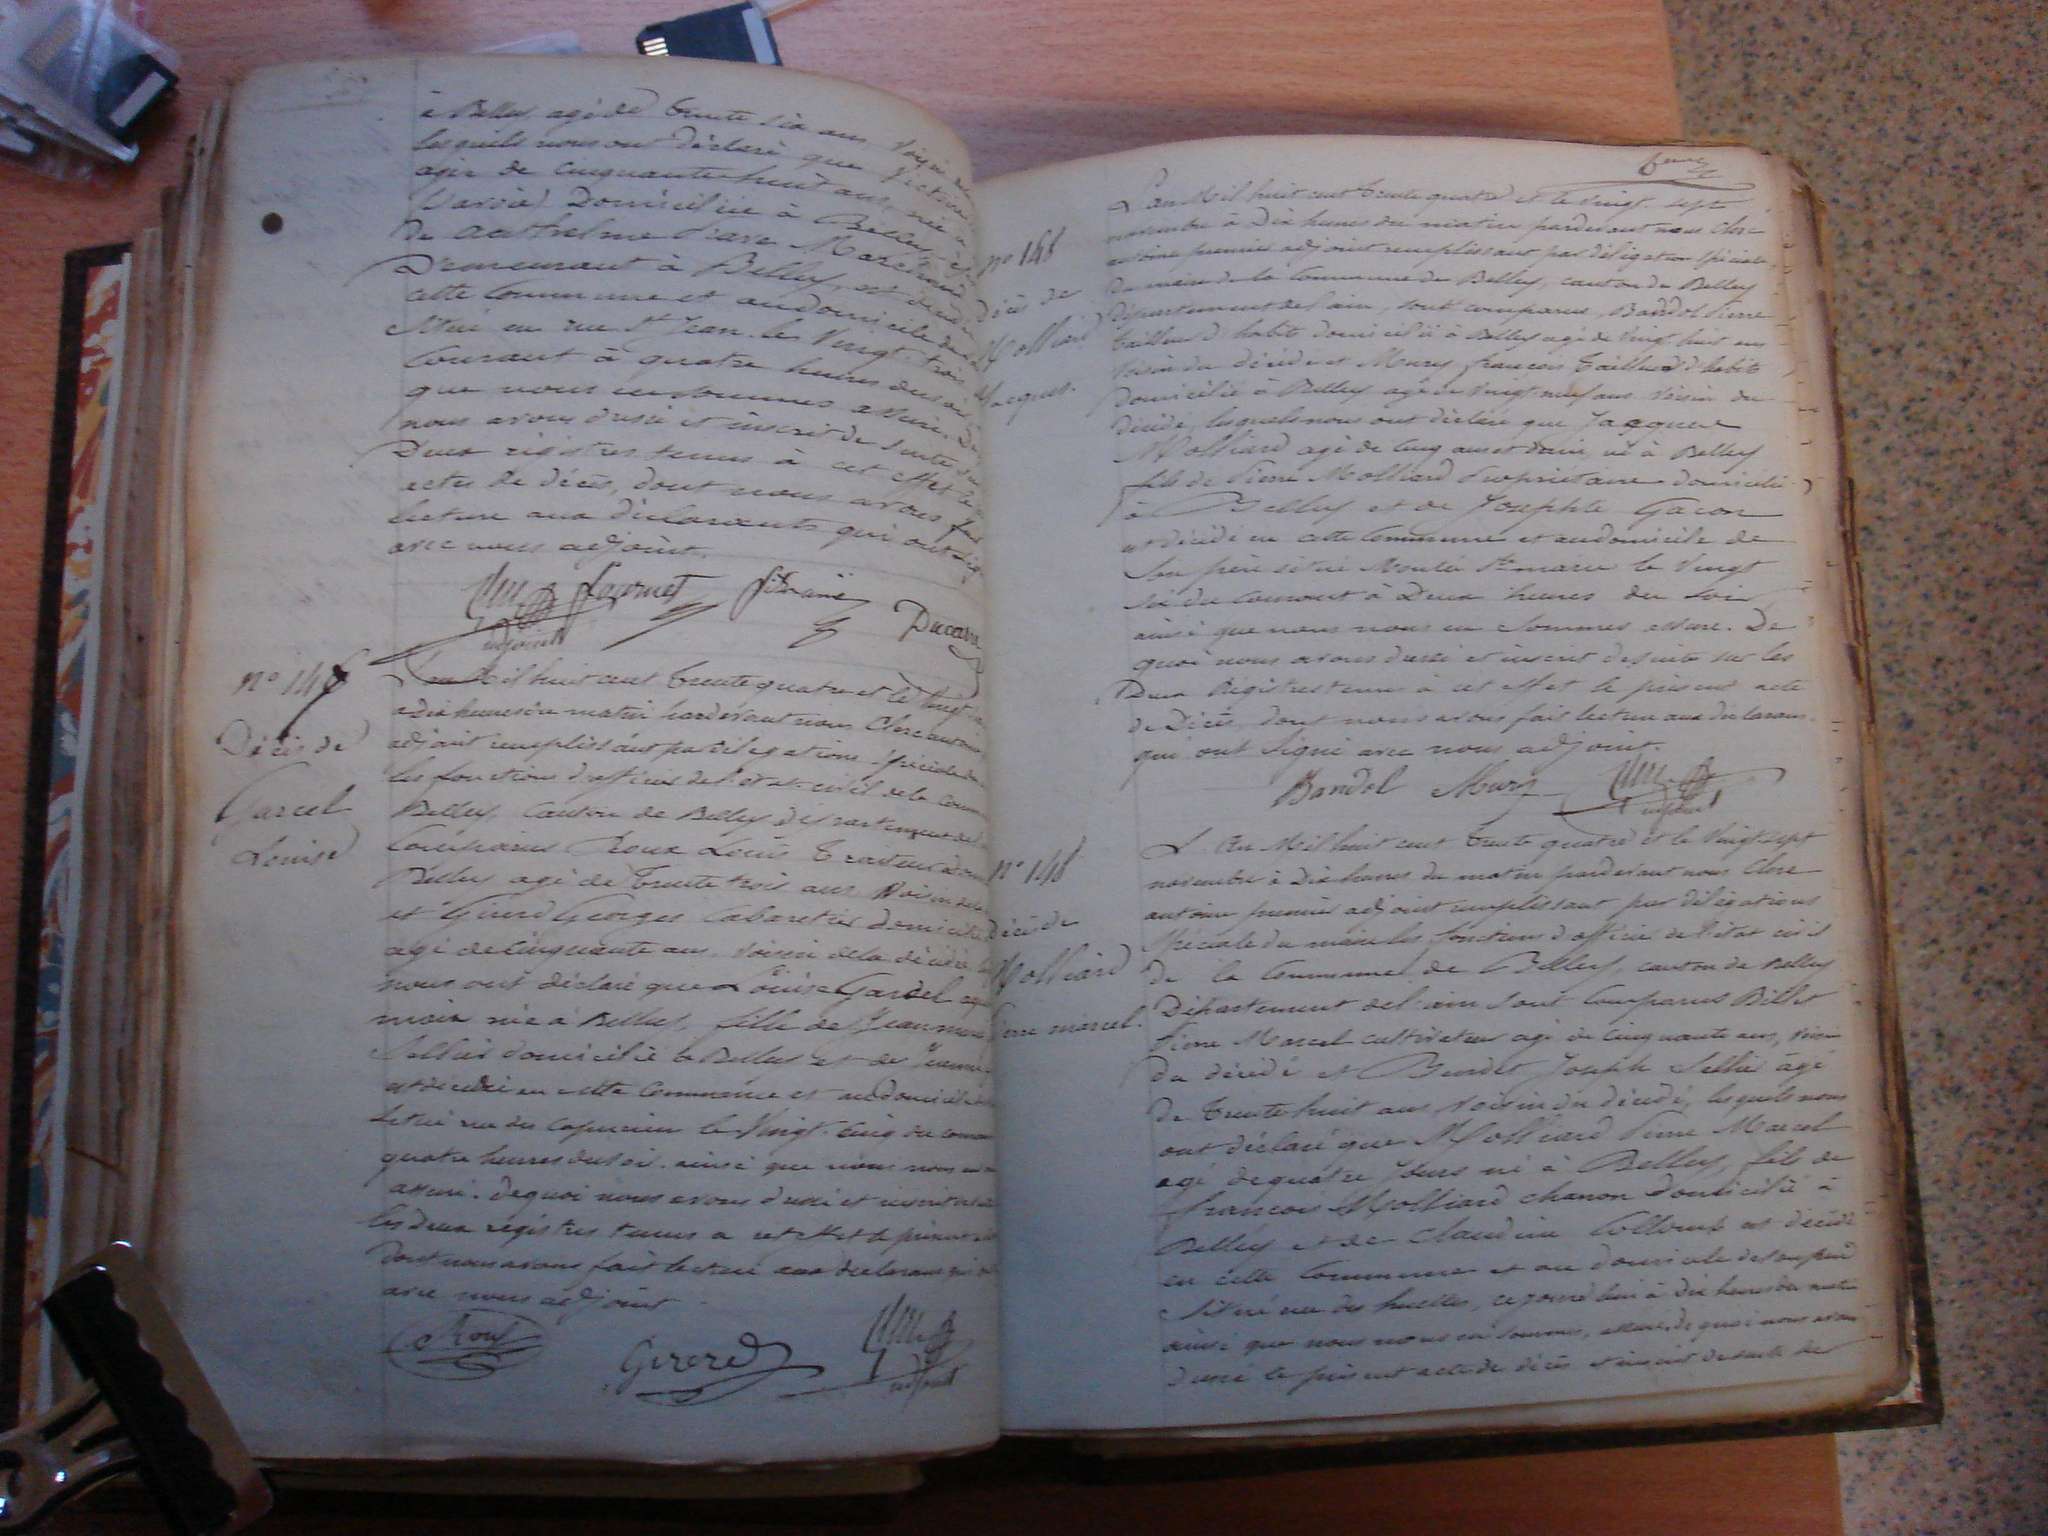 à Belley agé de trente six ans voisin
lesquels nous ont déclaré que
agée de cinquante huit ans, née à
(Savoie) Domiciliée à Belley
De anthelme
Demeurant à Belley, est décédée
cette Commune et au domicile de
situé en rue St Jean le Vingt trois
Courant à quatre heures du soir
que nous nous en sommes assuré. De
nous avons dressé et inscrit de suite sur
Deux régistres tenus à cet effet le
actes de décès, dont nous avons fait
lecture aux déclarants qui ont signé
avec nous adjoint.
Fournet
Ducarre
adjoint
n° 146
Décès de
Garcel
Louise
L'an Mil huit cent trente quatre et le Vingt
à dix heures du matin pardevant nous Clerc antoine
adjoint remplissant par délégations Spéciale du
les fonctions d'officier de l'état civil de la Commune
Belley, Canton de Belley, département de
Comparus Roux Louis
Belley agé de trente trois ans Voisin de la
et Girerd Georges Cabaretier domicilié
agé de Cinquante ans, Voisin de la décédée
nous ont déclaré que Louise Garcel agée
mois née à Belley, fille de Jean
Sellier domicilié à Belley et de Jeanne
est décédée en cette Commune et au domicile
situé rue des Capucins le Vingt-Cinq du courant
quatre heures du soir. ainsi que nous nous en
assuré. de quoi nous avons dressé et inscrit de suite
les deux régistres tenus à cet effet le présent
dont nous avons fait lecture aux déclarants qui ont
avec nous adjoint
Roux
Girerd
adjoint
L'an Mil huit cent trente quatre et le Vingt sept
novembre à Dix heures du matin pardevant nous Clerc
antoine premier adjoint remplissant par délégation Spéciale
Du maire de la Commune de Belley, canton de Belley
Département de l'ain, sont comparus, Bandol Pierre
tailleur d'habits domicilié à Belley agé de Vingt huit ans
Voisin du décédé et Mury françois tailleur d'habits
Domicilié à Belley agé de Vingt-neuf ans Voisin du
Décédé, lesquels nous ont déclaré que Jacques
Molliard agé de Cinq ans et demi, né à Belley
fils de Pierre Molliard Propriétaire domicilié
à Belley et de Josephte Gacon
est décédé en cette Commune et au domicile de
Son père situé Montée Ste marie le Vingt
six du Courant à Deux heures du Soir
ainsi que nous nous en Sommes assuré. De
quoi nous avons dressé et inscrit de suite sur les
Deux Régistres tenus à cet effet le présent acte
de Décès, dont nous avons fait lecture aux déclarans
qui ont Signé avec nous adjoint.
n° 146
Décès de
Molliard
Jacques.
Bandol Mury
adjoint
n° 148
Décès de
Molliard
Pierre marcel.
L'An Mil huit cent trente quatre et le Vingt sept
novembre à Dix heures du matin pardevant nous Clerc
antoine premier adjoint remplissant par délégations
Spéciale du maire les fonctions d'officier de l'état civil
De la Commune de Belley, canton de Belley
Département de l'ain sont Comparus Billet
Pierre Marcel cultivateur agé de Cinquante ans, Voisin
Du décédé et Joseph Sellier âgé
De trente huit ans Voisin du décédé, lesquels nous
ont déclaré que Molliard Pierre Marcel
agé de quatre Jours né à Belley, fils de
françois Molliard domicilié à
Belley et de Claudine est décédé
en cette Commune et au domicile de son père
situé rue des ce jourd'hui à Dix heures du matin
ainsi que nous nous en sommes, assuré, de quoi nous avons
dressé le présent acte de décès et inscrit de suite sur